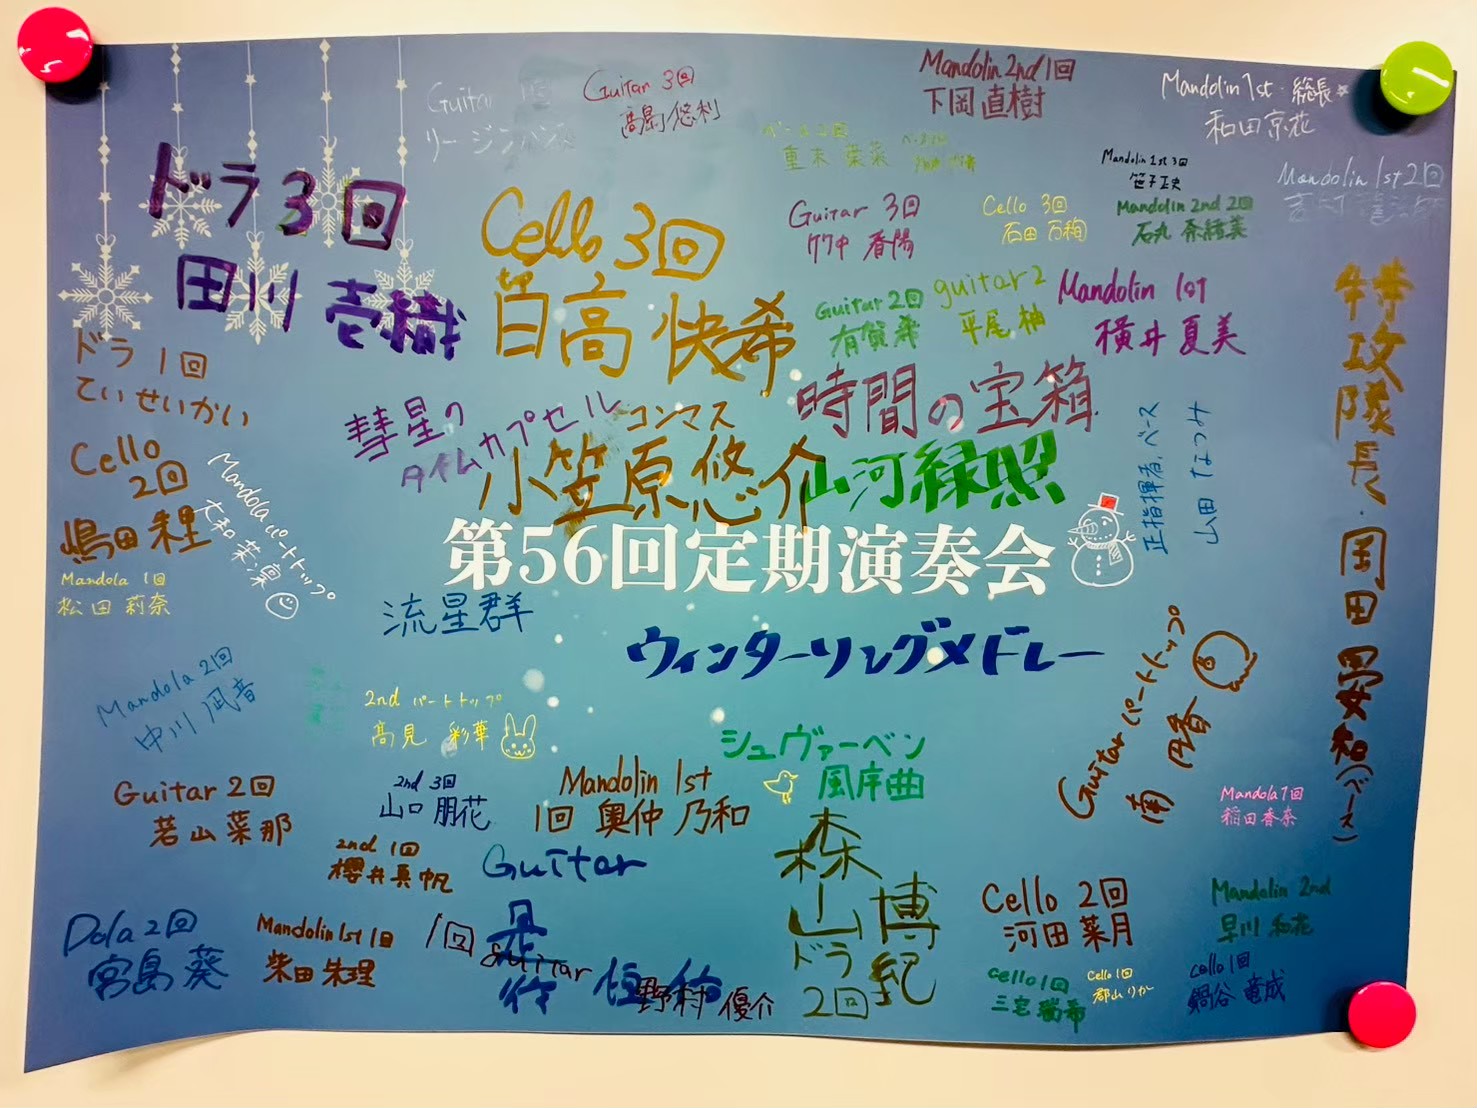 Guitar
リー ジンハン
Guitar 3回
髙島 悠利
Mandolin 2nd 1回
下岡 直樹
Mandolin 1st・総長
和田京花
ベース2回
重末 葉菜
Mandolin 1st 3回
笹子正史
Mandolin 1st 2回
ドラ 3回
田川 壱織
Cello 3回
日高 快希
Guitar 3回
竹中 春陽
Cello 3回
石田 万梅
Mandolin 2nd 2回
石丸 奈緒美
Guitar 2回
有賀 希
guitar 2
平尾 柚
Mandolin 1st
横井 夏美
特攻隊長・岡田 晏和(ベース)
ドラ 1回
ていせいかい
彗星の
タイムカプセル
コンマス
小笠原悠介
時間の宝箱
山河緑照
正指揮者、ベース
山田 なつみ
Cello
2回
嶋田 理
Mandola パートトップ
大和 菜凛
Mandola 1回
松田 莉奈
第56回定期演奏会
流星群
ウィンターソングメドレー
Mandola 2回
中川 凪音
2nd パートトップ
高見 彩華
シュヴァーベン
風序曲
Guitar パートトップ
南 円香
Guitar 2回
若山 菜那
2nd 3回
山口 朋花
Mandolin 1st
1回 奥仲 乃和
Mandola 1回
稲田香奈
2nd 1回
櫻井真帆
Guitar
1回
森山 博紀
ドラ
2回
Cello 2回
河田 菜月
Mandolin 2nd
早川 和花
Dola 2回
宮島 葵
Mandolin 1st 1回
柴田 朱理
guitar
野村 優介
cello 1回
三宅 瑞希
Cello 1回
郡山 りか
cello 1回
鍋谷 竜成